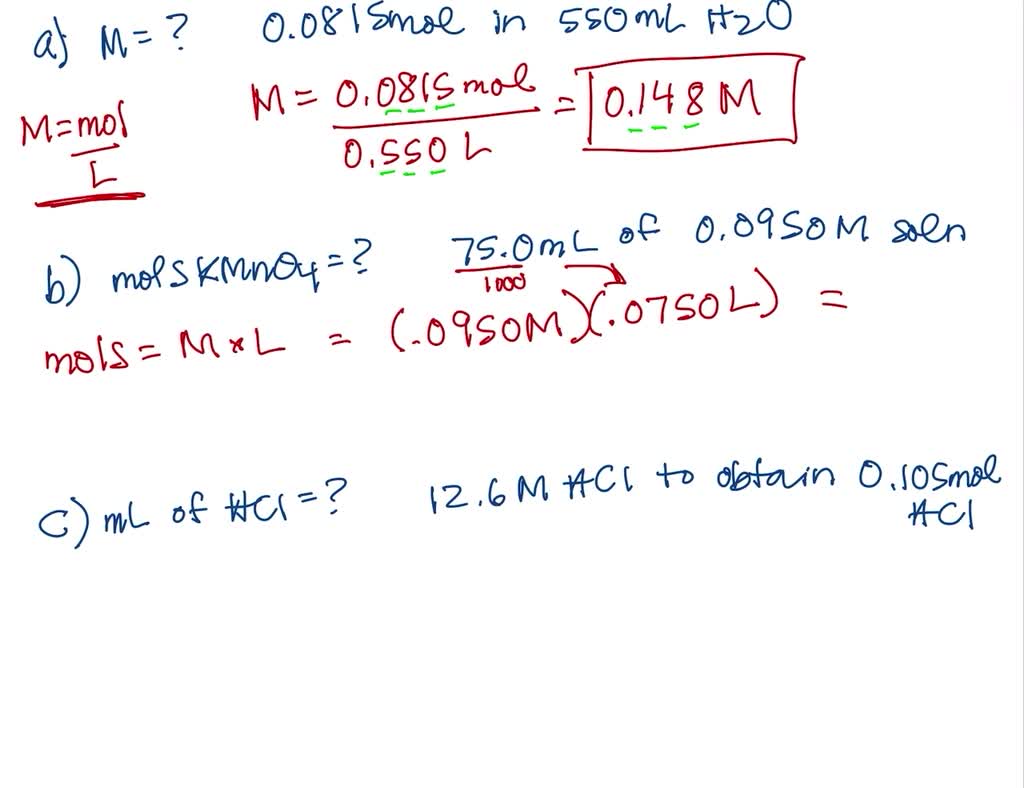 a) M = ? 0.0815mol in 550mL H2O
M = mol / L
M = 0.0815mol / 0.550 L = 0.148 M
b) mols KMnO4 = ? 75.0mL of 0.0950M soln
1000
mols = M × L = (.0950M)(.0750L) =
c) mL of HCl = ? 12.6M HCl to obtain 0.105mol
HCl